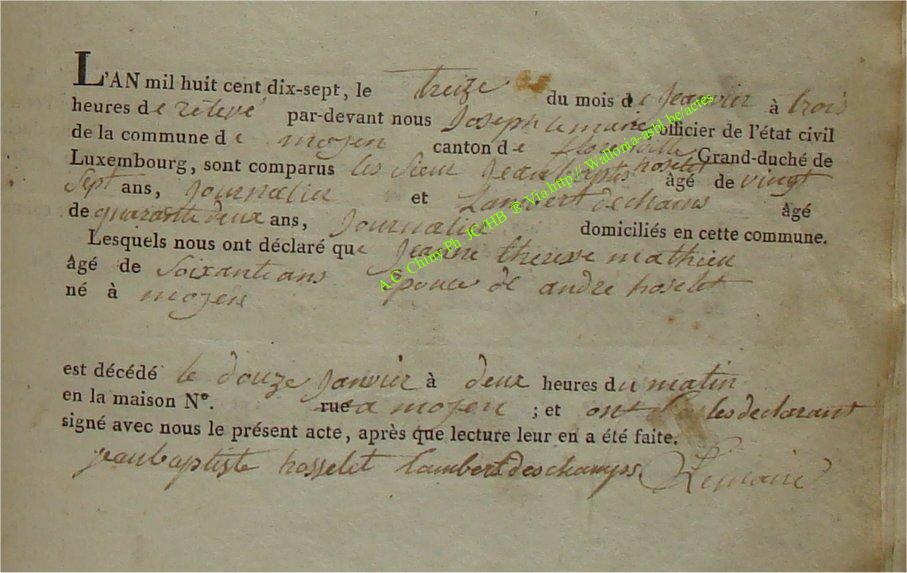 L'AN mil huit cent dix-sept, le treize du mois de Janvier à trois
heures de relevé par-devant nous Joseph lemaire officier de l'état civil
de la commune de moyen canton de florenville Grand-duché de
Luxembourg, sont comparus les Sieur Jean baptis hoselet âgé de vingt
Sept ans, Journalier et Lambert dechams âgé
de quarante deux ans, Journalier domiciliés en cette commune.
Lesquels nous ont déclaré que Jeanne therese mathieu
âgé de Soixante ans Epouce de andré hoselet
né à moyen
est décédé le douze Janvier à deux heures du matin
en la maison N°. rue a moyen ; et ont les declarant
signé avec nous le présent acte, après que lecture leur en a été faite.
jeanbaptiste hosselet lambert deschamps. Lemaire
A.G. Chiny.Ph JCr/HB ® Via http://Wallonia-asbl.be/actes